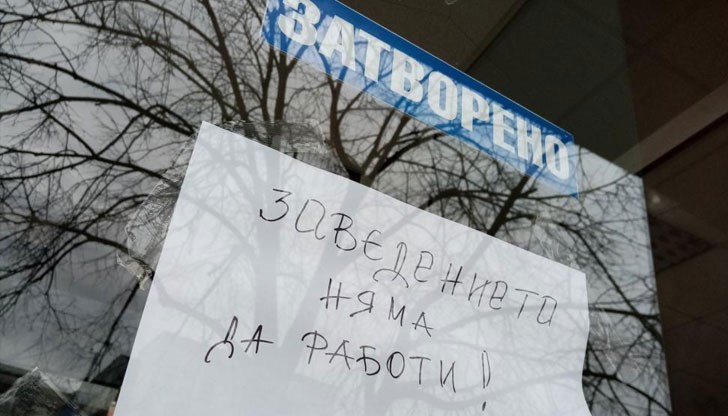 ЗАТВОРЕНО
ЗАВЕДЕНИЕТО
НЯМА
ДА РАБОТИ!